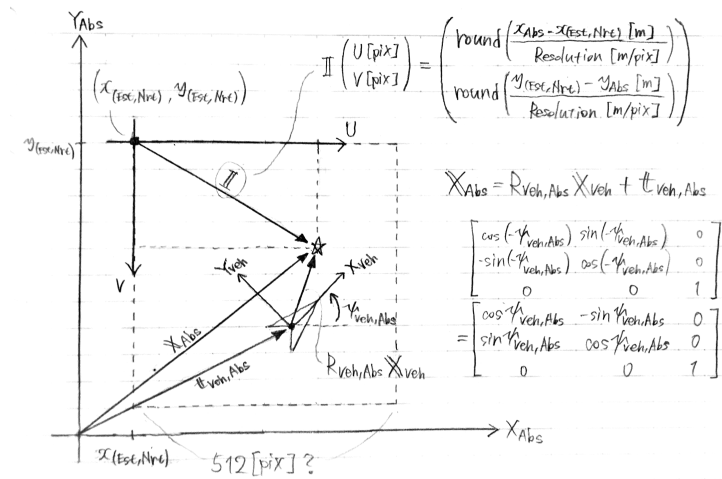 Y_Abs
(x_(Est,Nrt), y_(Est,Nrt))
𝕀 (U [pix]
V [pix]) = (round((x_Abs - x_(Est,Nrt) [m]) / (Resolution [m/pix]))
round((y_(Est,Nrt) - y_Abs [m]) / (Resolution [m/pix])))
U
y_(Est,Nrt)
𝕀
V
𝕏_Abs = R_veh,Abs 𝕏_veh + 𝕥_veh,Abs
[cos(-ψ_veh,Abs) sin(-ψ_veh,Abs) 0
-sin(-ψ_veh,Abs) cos(-ψ_veh,Abs) 0
0 0 1]
= [cosψ_veh,Abs -sinψ_veh,Abs 0
sinψ_veh,Abs cosψ_veh,Abs 0
0 0 1]
Y_veh
X_veh
ψ_veh,Abs
𝕏_Abs
𝕥_veh,Abs
R_veh,Abs 𝕏_veh
X_Abs
x_(Est,Nrt)
512 [pix] ?